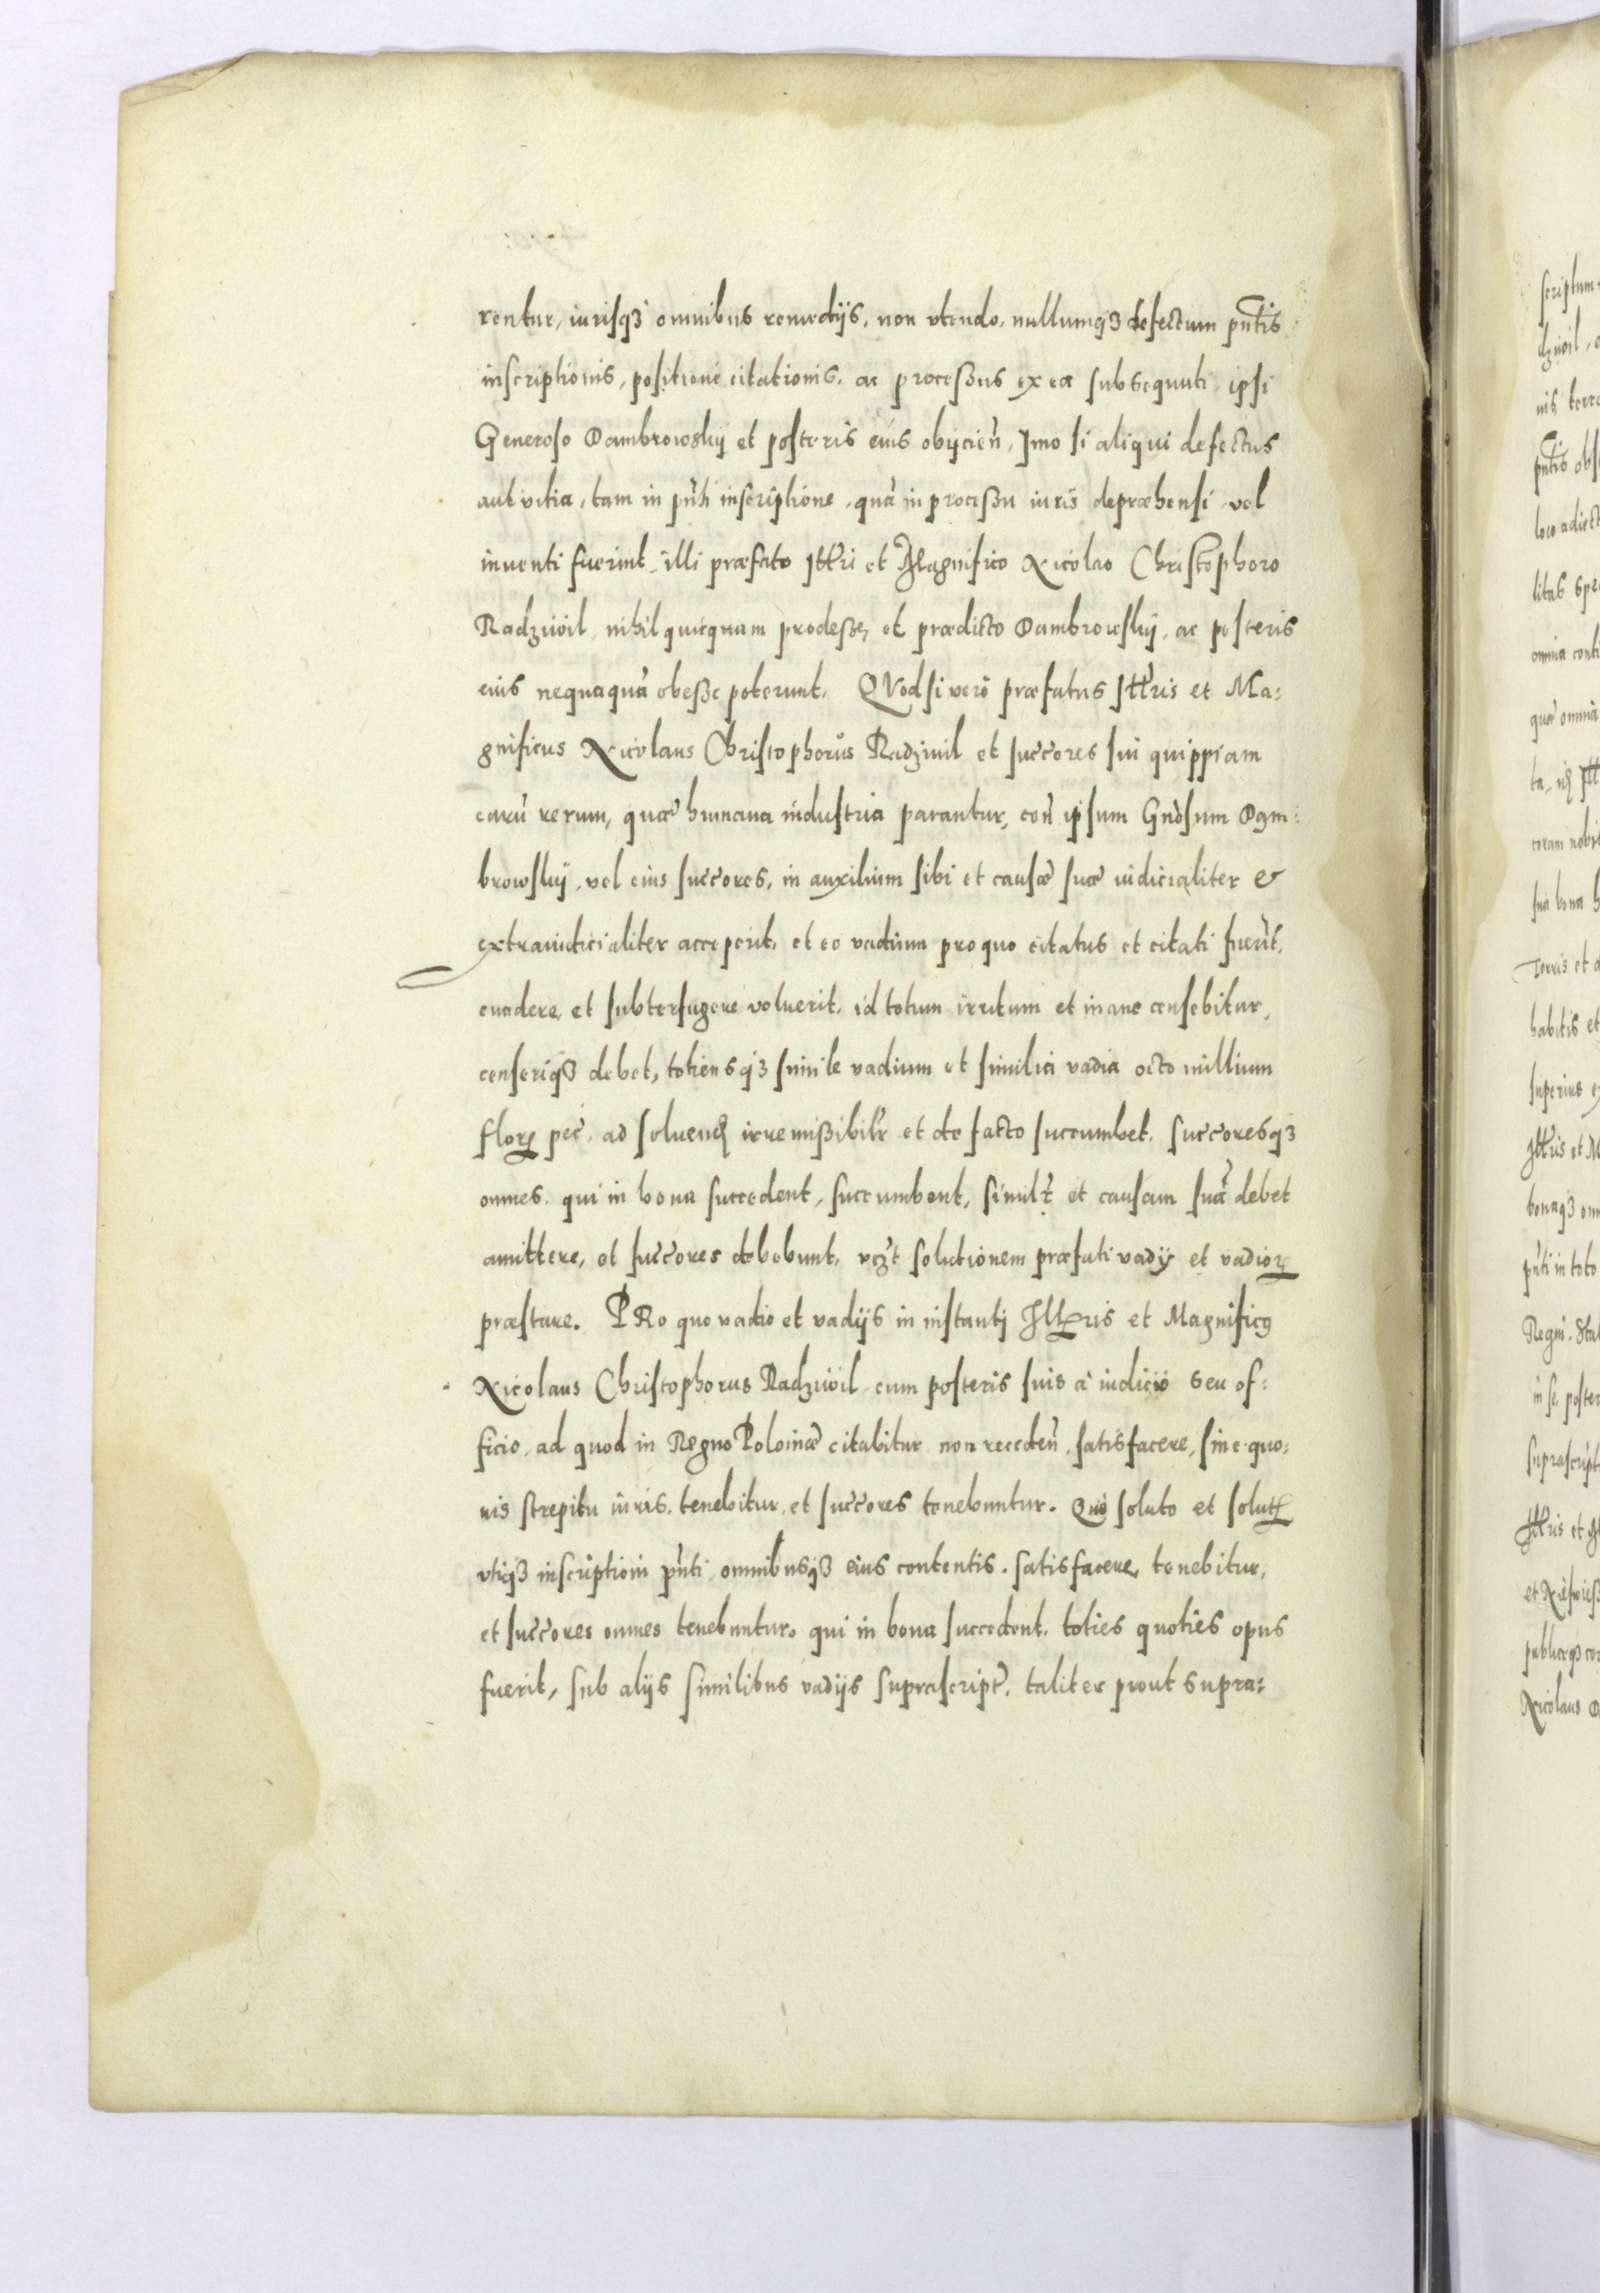 rentur, iurisq3 omnibus remedijs, non vtendo, nullumq3 defectum pn̄tis
inscriptionis, positione citationis, ac processus ex ea subsequuti, ipsi
Generoso Dambrowskij et posteris eius obijcien̄, Imo si aliqui defectus
aut vitia, tam in pn̄ti inscriptione, quā in processu iuris depræhensi vel
inuenti fuerint, illi præfato Illri et Magnifico Nicolao Christophoro
Radziwil, nihil quicquam prodesse, et prædicto Dambrowskij, ac posteris
eius nequaquā obesse poterunt. QVod si verò præfatus Illris et Ma:
gnificus Nicolaus Christophorus Radziuil et succ̄ores sui quippiam
earū rerum, quæ humana industria parantur, con̄ ipsum Gn̄osum Dam:
browskij, vel eius succ̄ores, in auxilium sibi et causæ suæ iudicialiter &
extraiudicialiter acceperit, et eo vadium pro quo citatus et citati fuer̄t,
euadere, et subterfugere voluerit, id totum irritum et inane censebitur,
censeriq3 debet, totiensq3 simile vadium et similia vadia octo millium
floꝝ pec̄, ad soluend irremissibilr̄ et de facto succumbet, succ̄oresq3
omnes, qui in bona succedent, succumbent, simil̄r et causam suā debet
amittere, et succ̄ores debebunt, vcz̄t solutionem præfati vadij et vadioꝝ
præstare. PRo quo vadio et vadijs in instanti Illris et Magnificꝯ
Nicolaus Christophorus Radziwil cum posteris suis à iudicio seu of:
ficio, ad quod in Regno Poloniæ citabitur non receden̄, satisfacere, sine quo:
uis strepitu iuris, tenebitur, et succ̄ores tenebuntur. Quo soluto et solutꝭ
vtiq3 inscriptioni pn̄ti omnibusq3 eius contentis, satisfacere, tenebitur,
et succ̄ores omnes tenebuntur, qui in bona succedent, toties quoties opus
fuerit, sub alijs similibus vadijs suprascript̄, taliter prout supra: